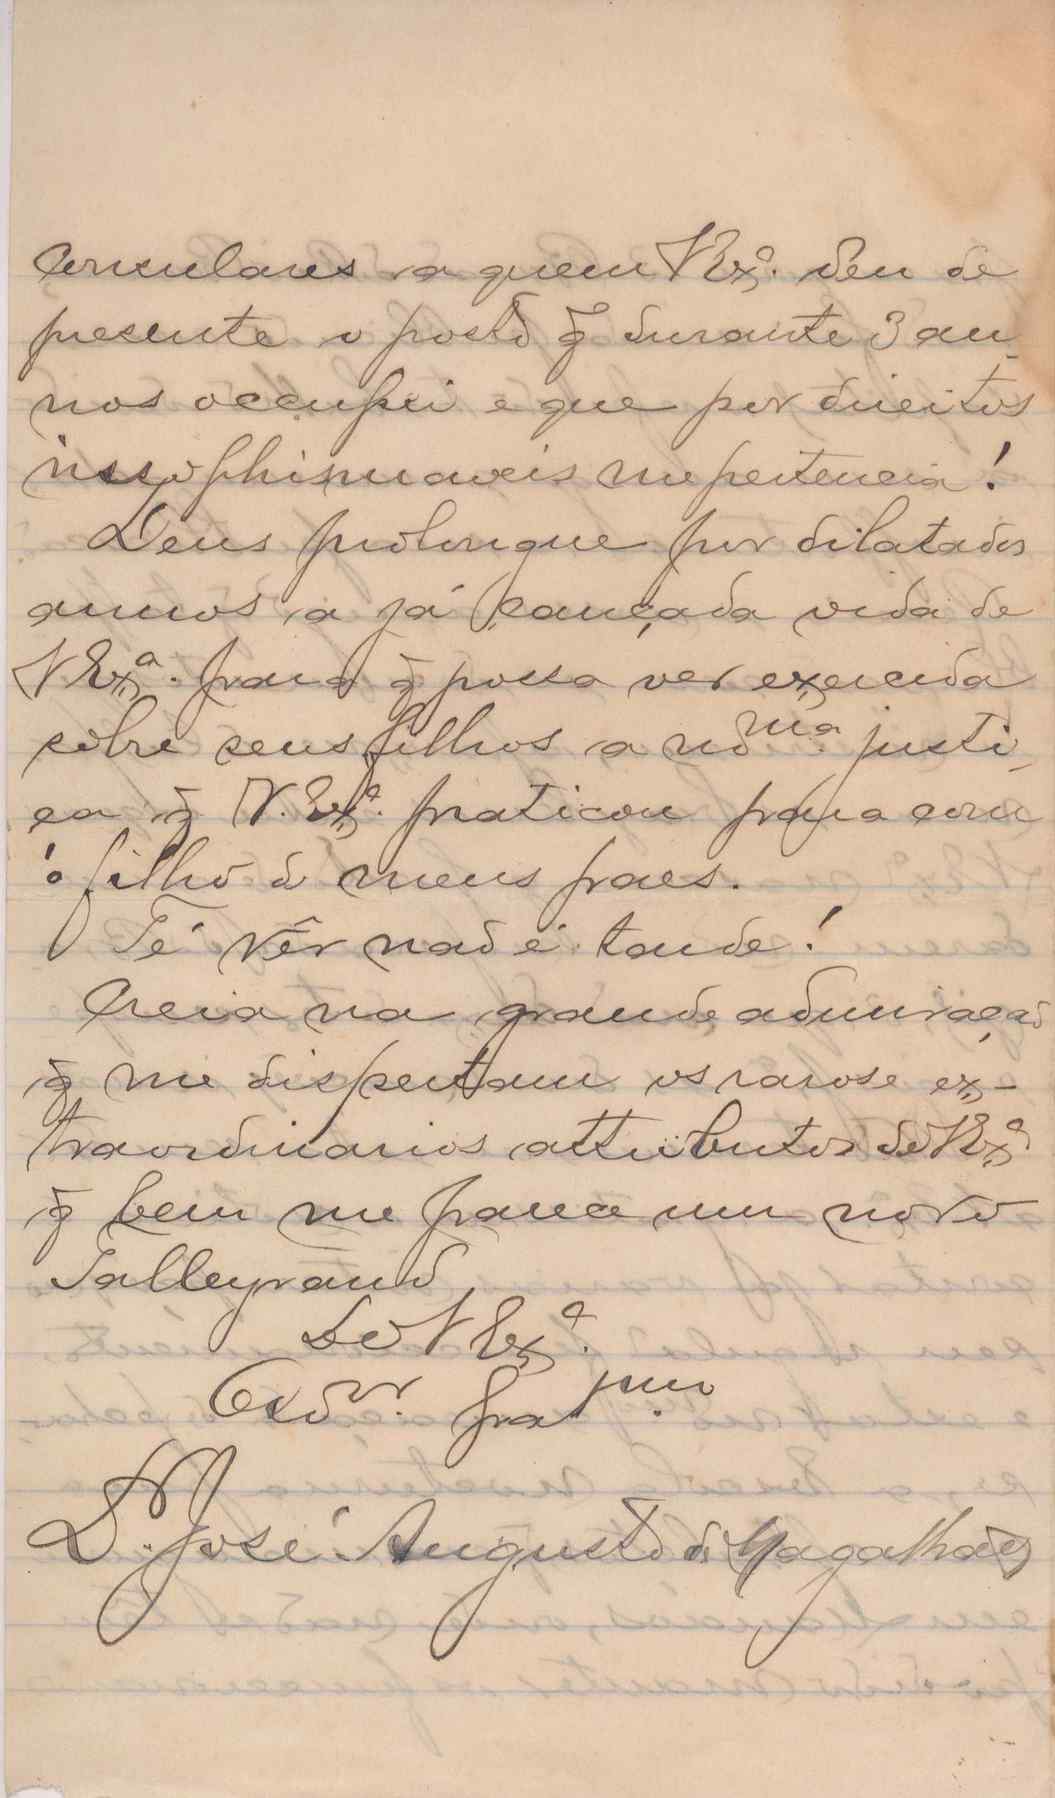 Consulares a quem V Ex.ª deu de
presente o posto q̃ durante 3 an-
nos occupei e que por direitos
insophismaveis me pertencia!
Deus prolongue por dilatados
annos a já cançada vida de
V Ex.ª para q̃ possa ver exercida
sobre seus filhos a m.ma justi-
ça q̃ V. Ex.ª praticou para com
o filho de meus paes.
Té vêr não é tarde!
Creia na grande admiração
q̃ me dispertam os raros e ex-
traordinarios attributos de V Ex.ª
q̃ bem me parece um novo
Talleyrand
De V Ex.ª
Cr.dor
Dr. José Augusto de Magalhães